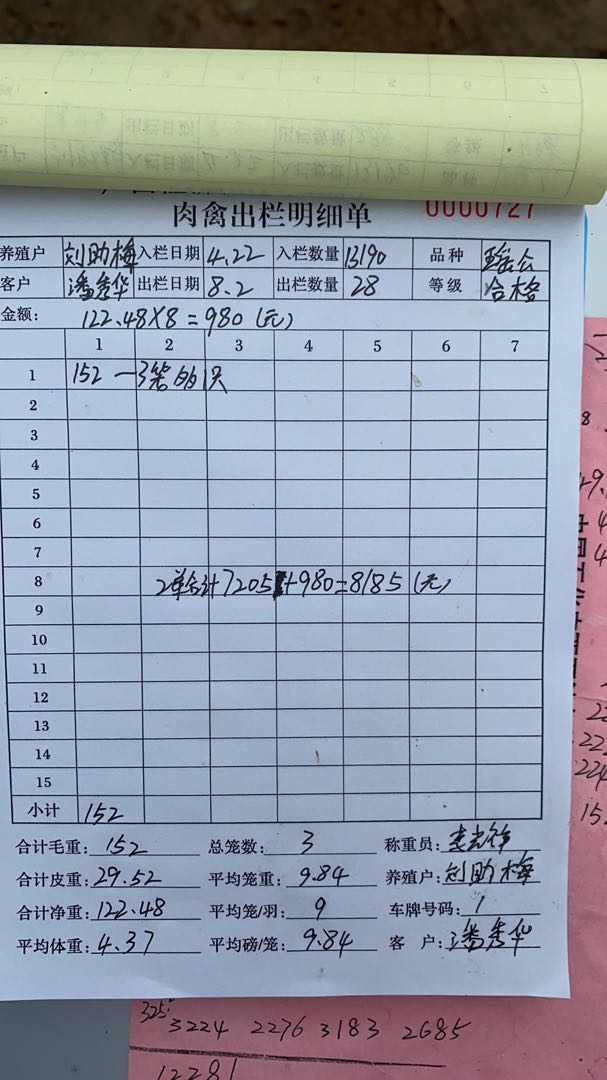 肉禽出栏明细单 0000727
养殖户 刘助梅 入栏日期 4.22 入栏数量 13190 品种
客户 潘秀华 出栏日期 8.2 出栏数量 28 等级 合格
金额: 122.48×8=980(元)
1 2 3 4 5 6 7
1 152 一3笼
2
3
4
5
6
7
8 2单合计7205+980=8185(元)
9
10
11
12
13
14
15
小计 152
合计毛重: 152 总笼数: 3 称重员:
合计皮重: 29.52 平均笼重: 9.84 养殖户: 刘助梅
合计净重: 122.48 平均笼/羽: 9 车牌号码: 1
平均体重: 4.37 平均磅/笼: 9.84 客户: 潘秀华
3224 2276 3183 2685
12281